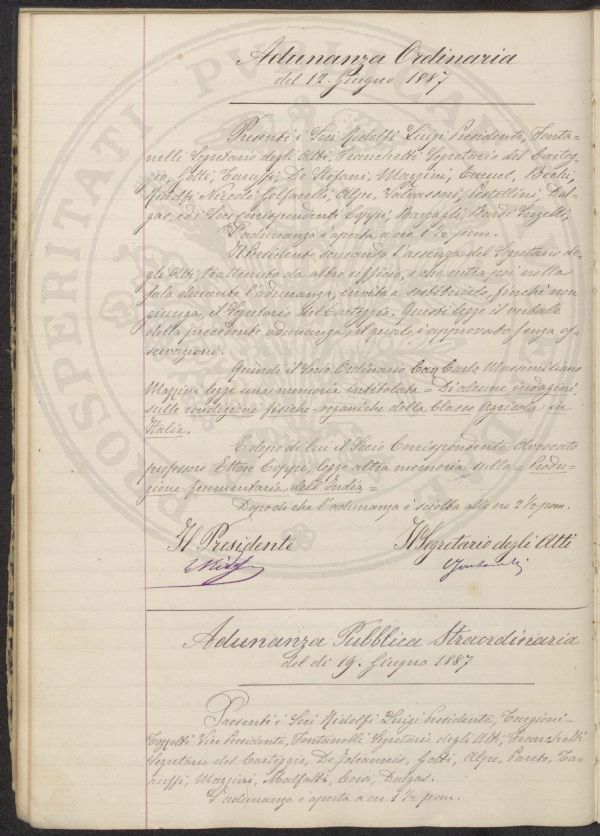 Adunanza Ordinaria
del 12 Giugno 1887
Presenti i Soci Ridolfi Luigi Presidente, Fonta-
nelli Segretario degli Atti, Franchetti Segretario del Carteg-
gio, Gotti, Taruffi, De Stefani, Mazzini, Caruel, Bechi,
Ridolfi Niccolò, Golfarelli, Alpe, Valvassori, Pestellini, Dal-
gas, ed i Soci corrispondenti Coppi, Bargagli,
L'adunanza è aperta a ore 1 ½ pom.
Il Presidente scusando l'assenza del Segretario de-
gli Atti trattenuto da altro ufficio, e che entra poi nella
sala durante l'adunanza, invita a sostituirlo, finchè non
giunga, il Segretario del Carteggio. Questi legge il verbale
della precedente adunanza, il quale è approvato senza os-
servazioni.
Quindi il Socio Ordinario Cav. Carlo Massimiliano
Mazzini legge una memoria intitolata = Di alcune indagini
sulle condizioni fisiche-organiche della Classe Agricola in
Italia.
E dopo di lui il Socio Corrispondente Avvocato
professore Ettore Coppi, legge altra memoria sulla = Produ-
zione frumentaria dell'India =
Dopo di che l'adunanza è sciolta alle ore 2 ½ pom.
Il Presidente Il Segretario degli Atti
L Ridolfi Fontanelli
Adunanza Pubblica Straordinaria
del dì 19. Giugno 1887
Presenti i Soci Ridolfi Luigi Presidente, Targioni-
Tozzetti Vice Presidente, Fontanelli Segretario degli Atti, Franchetti
Segretario del Carteggio, De Johannis, Gotti, Alpe, Pareto, Ta-
ruffi, Mazzini, Malfatti, Corsi, Dalgas.
L'adunanza è aperta a ore 1 ½ pom.
PROSPERITATI PUBLICAE